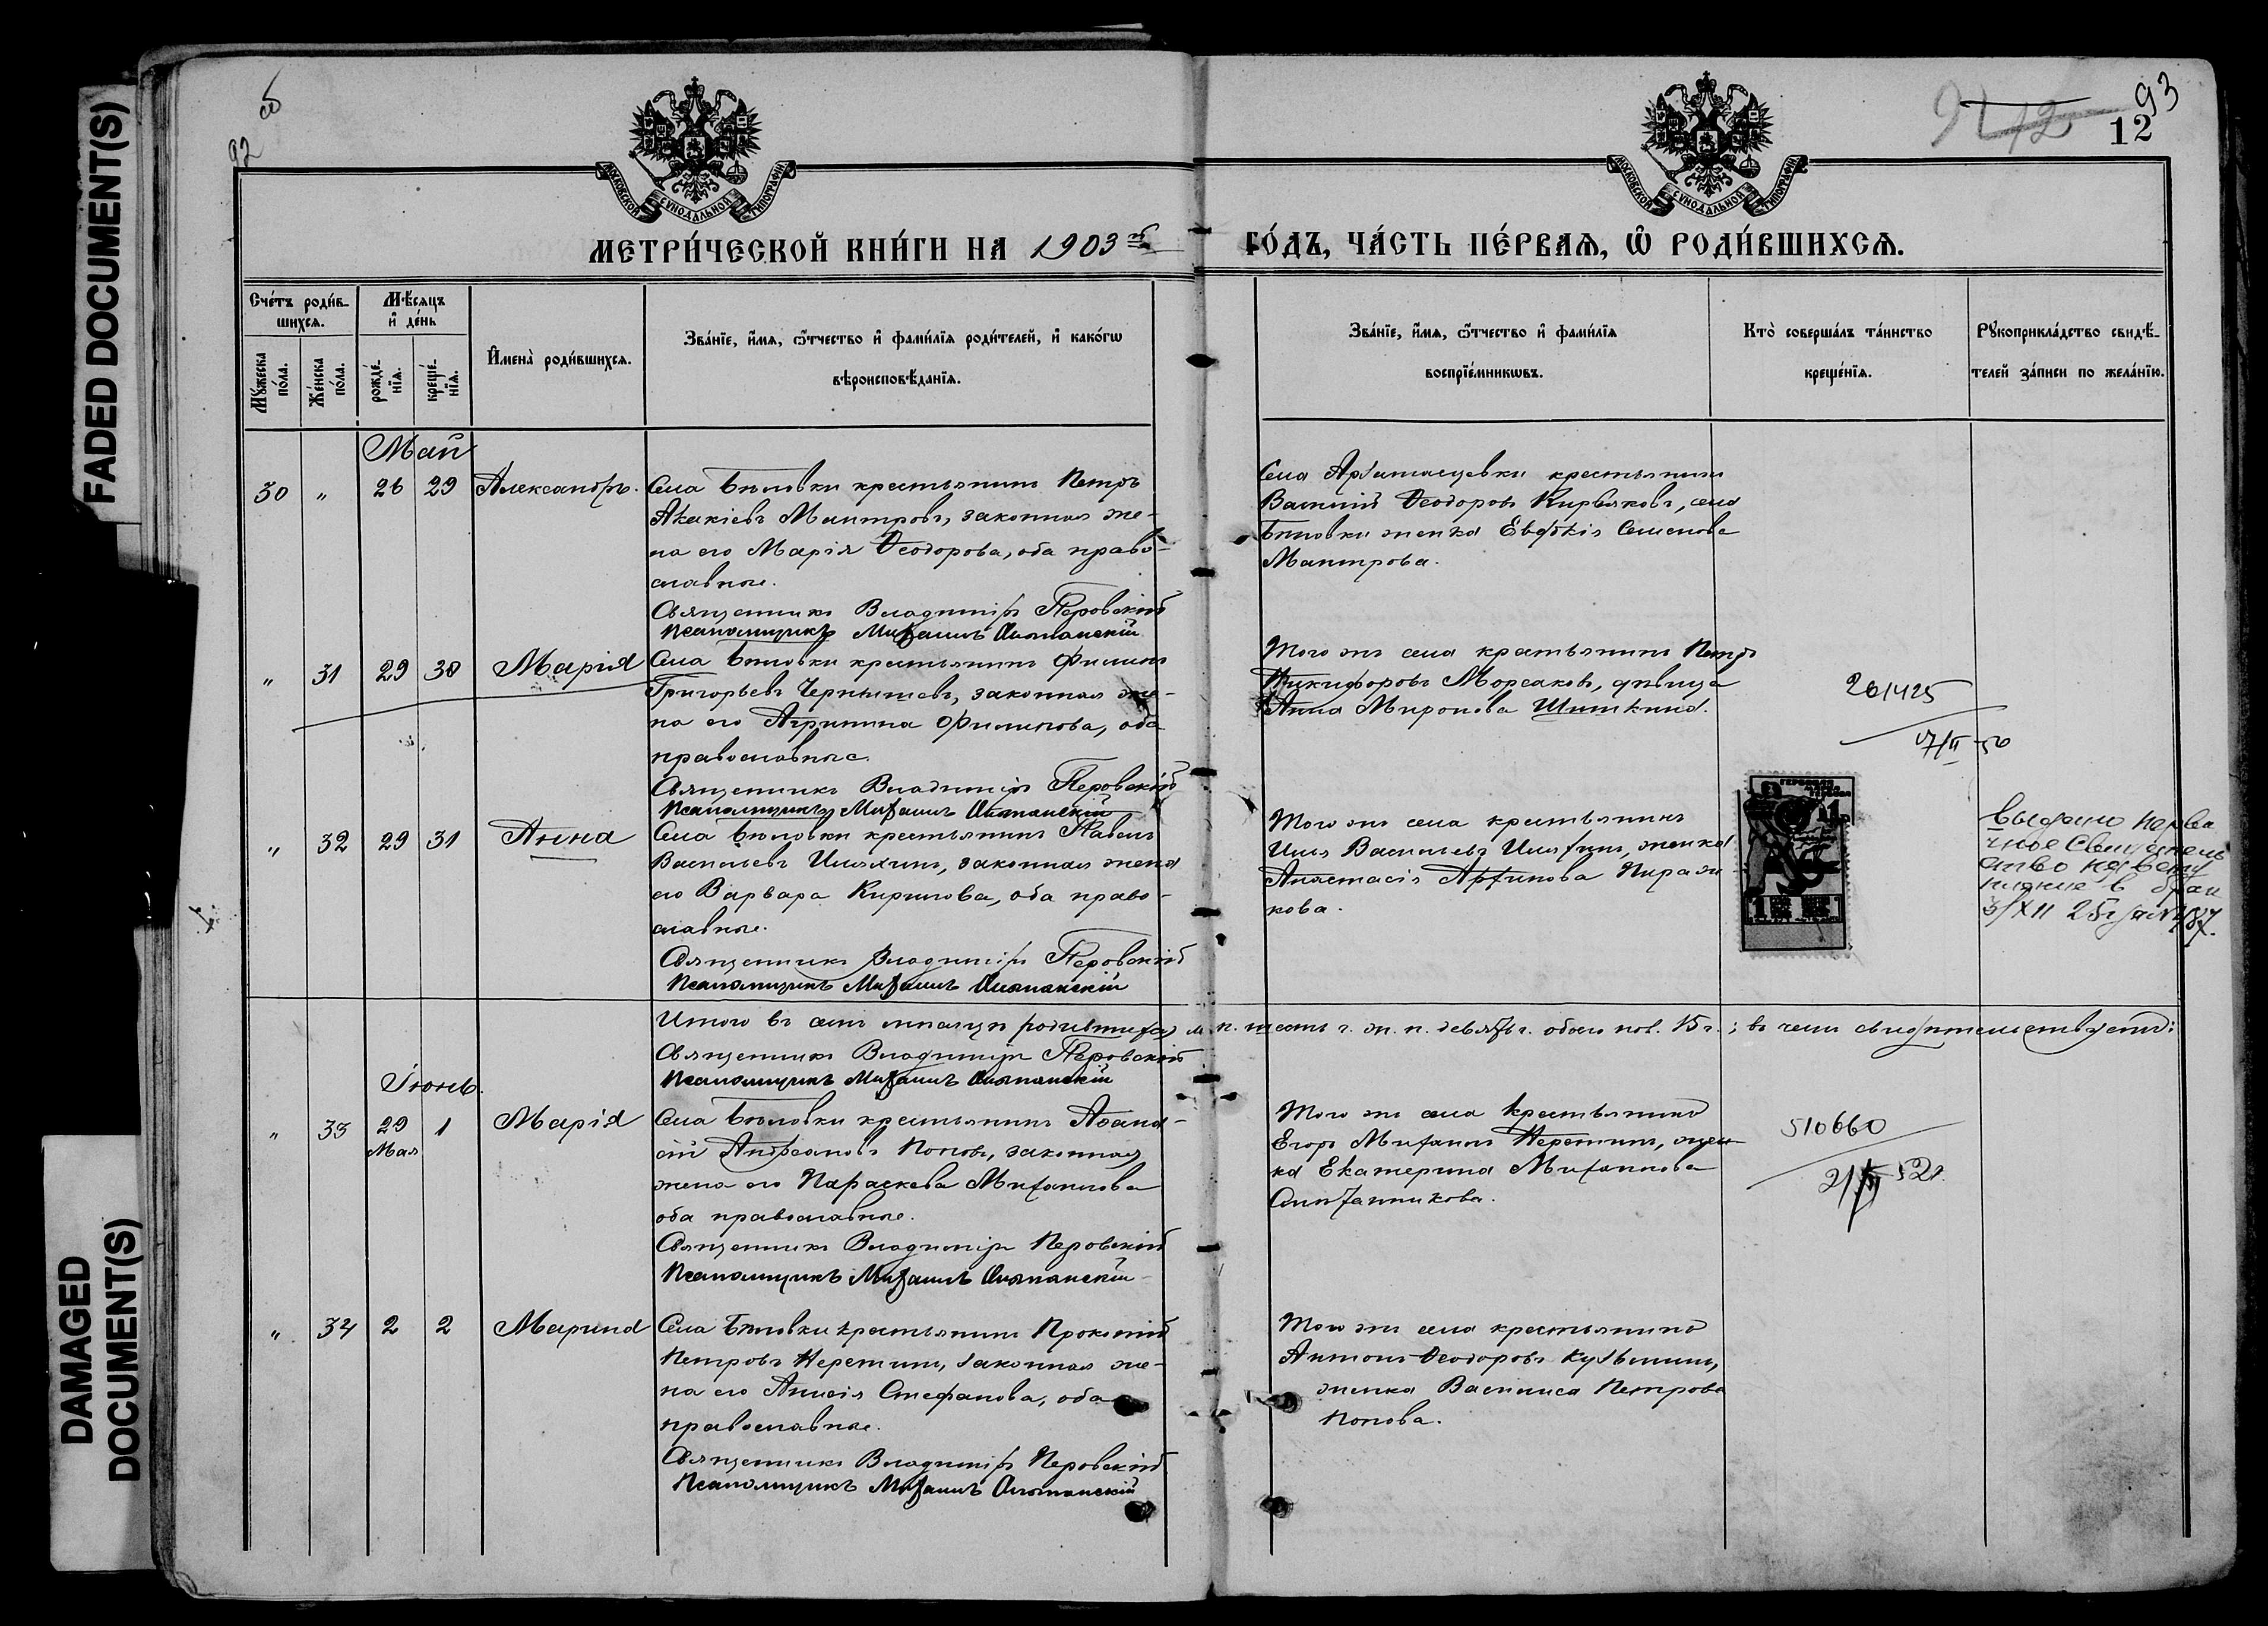 FADED DOCUMENT(S)
DAMAGED
DOCUMENT(S)
об
92
93
12
МОСКОВСКОЙ СѴНОДАЛЬНОЙ ТИПОГРАФІИ
МОСКОВСКОЙ СѴНОДАЛЬНОЙ ТИПОГРАФІИ
МЕТРИ́ЧЕСКОЙ КНИ́ГИ НА 1903 й
ГО́ДЪ, ЧА́СТЬ ПЕ́РВАѦ, Ѡ҆ РОДИ́ВШИХСѦ.
Сче́тъ роди́в-
шихсѧ.
Мꙋ́жеска
по́ла.
Же́нска
по́ла.
Мѣ́сѧцъ
и҆ де́нь
рожде́-
нїѧ.
креще́-
нїѧ.
И҆мена̀ роди́вшихсѧ.
Зва́нїе, и҆́мѧ, ѻ҆́тчество и҆ фами́лїѧ роди́телей, и҆ како́гѡ
вѣроисповѣ́данїѧ.
Зва́нїе, и҆́мѧ, ѻ҆́тчество и҆ фами́лїѧ
воспрїе́мникѡвъ.
Кто̀ соверша́лъ та́инство
креще́нїѧ.
Рꙋкоприкла́дство свидѣ́-
телей за́писи по жела́нїю.
Май
30 " 26 29 Александръ.
Села Бѣловки крестьянинъ Петръ
Акакіевъ Мантровъ, законная же-
на его Марія Ѳеодорова, оба право-
славные.
Священникъ Владиміръ Перовскій
Псаломщикъ Михаилъ
Села крестьянинъ
Василій Ѳеодоровъ Кирьяковъ, села
Бѣловки женка Евдокія Семенова
Мантрова.
" 31 29 30 Марія
Села Бѣловки крестьянинъ Филиппъ
Григорьевъ Чернышевъ, законная же-
на его Агрипина Филипова, оба
православные.
Священникъ Владиміръ Перовскій
Псаломщикъ Михаилъ
Того же села крестьянинъ Петръ
Никифоровъ Морсаковъ, дѣвица
Анна Миронова Шишкина.
261425
17/II-50
" 32 29 31 Анна
Села Бѣловки крестьянинъ Павелъ
Васильевъ Илюхинъ, законная жена
его Варвара Кирилова, оба право-
славные.
Священникъ Владиміръ Перовскій
Псаломщикъ Михаилъ
Того же села крестьянинъ
Илья Васильевъ Илюхинъ, женка
Анастасія Архипова Пираж-
кова.
выдано перви
чное свидетель
ство на вступ
ление в брак
Итого въ семъ мѣсяцѣ родившихся м. п. шесть ч. ж. п. девять ч. обоего пол. 15 ч.; въ чемъ свидѣтельствуетъ:
Священникъ Владиміръ Перовскій
Псаломщикъ Михаилъ
Іюнь.
" 33 29 1 Марія
Мая
Села Бѣловки крестьянинъ Аѳана-
сій Андреановъ Поповъ, законная
жена его Параскева Михаилова
оба православные.
Священникъ Владиміръ Перовскій
Псаломщикъ Михаилъ
Того же села крестьянинъ
Егоръ Михаиловъ Неретинъ, жен-
ка Екатерина Михаилова
510660
" 34 2 2 Марина
Села Бѣловки крестьянинъ Прокопій
Петровъ Неретинъ, законная же-
на его Анисія Стефанова, оба
православные.
Священникъ Владиміръ Перовскій
Псаломщикъ Михаилъ
Того же села крестьянинъ
Антонъ Ѳеодоровъ Кузьминъ,
женка Васлиса Петрова
Попова.